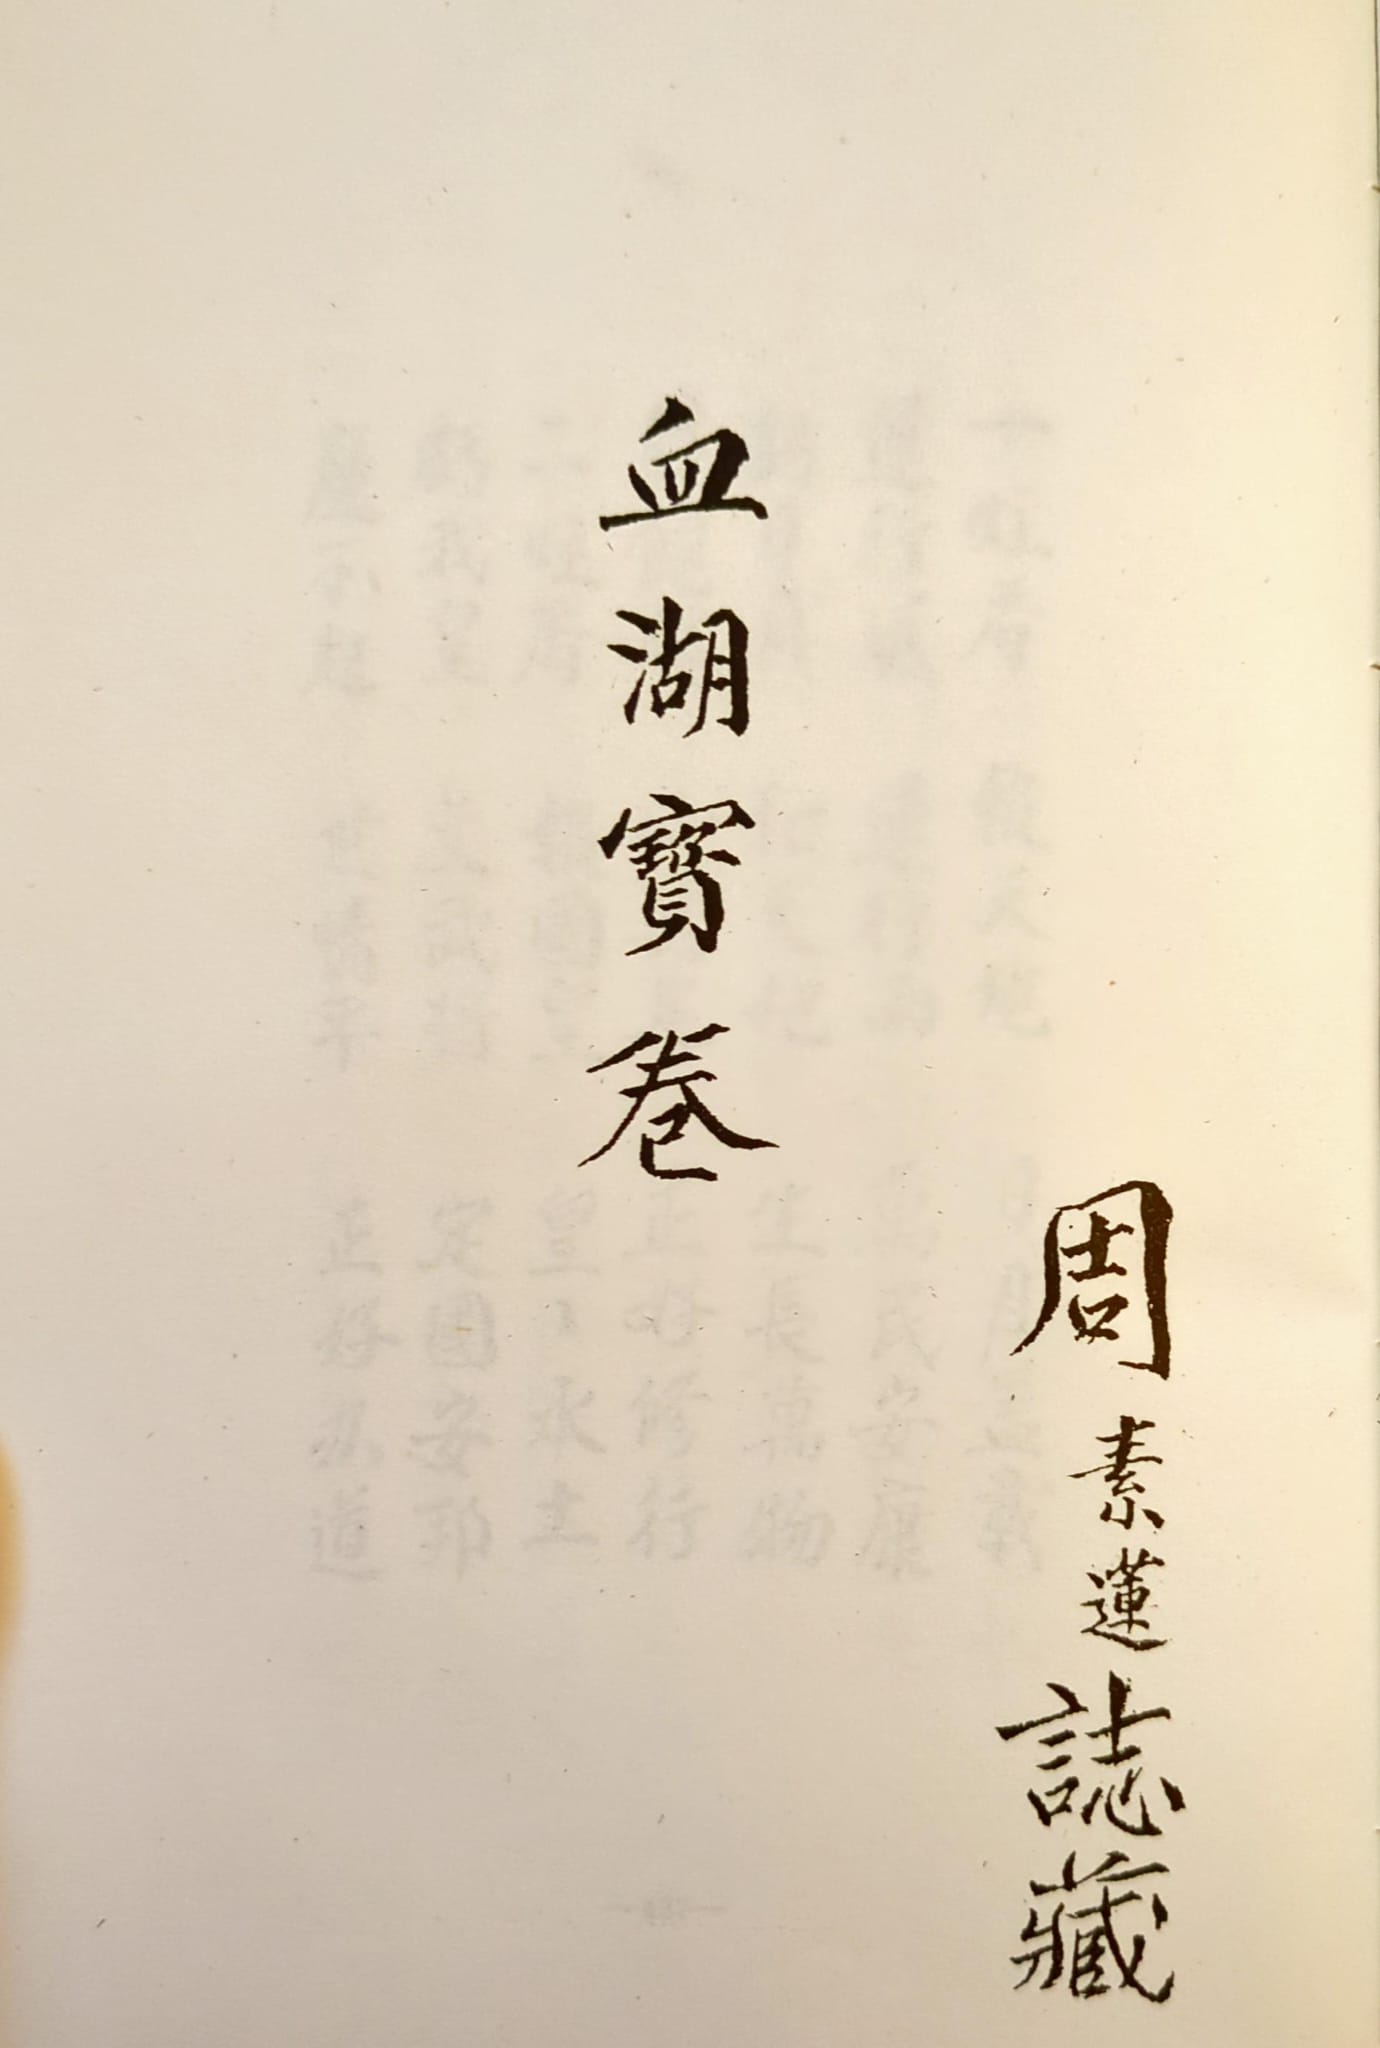 血湖寳卷
周素蓮誌藏